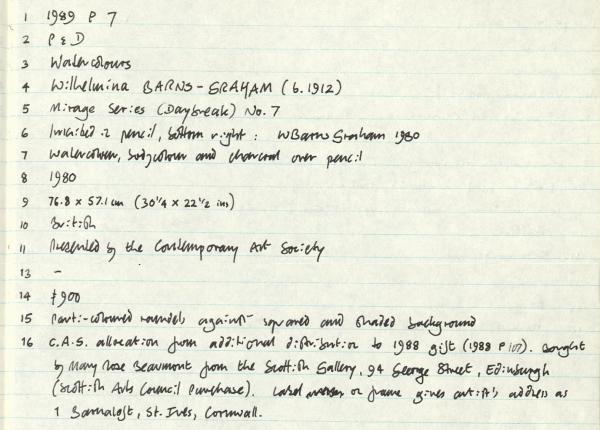 1 1989 P 7
2 P & D
3 Watercolours
4 Wilhelmina BARNS-GRAHAM (b. 1912)
5 Mirage Series (Daybreak) No. 7
6 Inscribed in pencil, bottom right: WBarns Graham 1980
7 Watercolour, bodycolour and charcoal over pencil
8 1980
9 76.8 x 57.1 cm (30 1/4 x 22 1/2 ins)
10 British
11 Presented by the Contemporary Art Society
13 -
14 £900
15 Parti-coloured roundels against squared and shaded background
16 C.A.S. allocation from additional distribution to 1988 gift (1988 P 107). Bought
by Mary Rose Beaumont from the Scottish Gallery, 94 George Street, Edinburgh
(Scottish Arts Council Purchase). Label on frame gives artist's address as
1 Barnaloft, St. Ives, Cornwall.